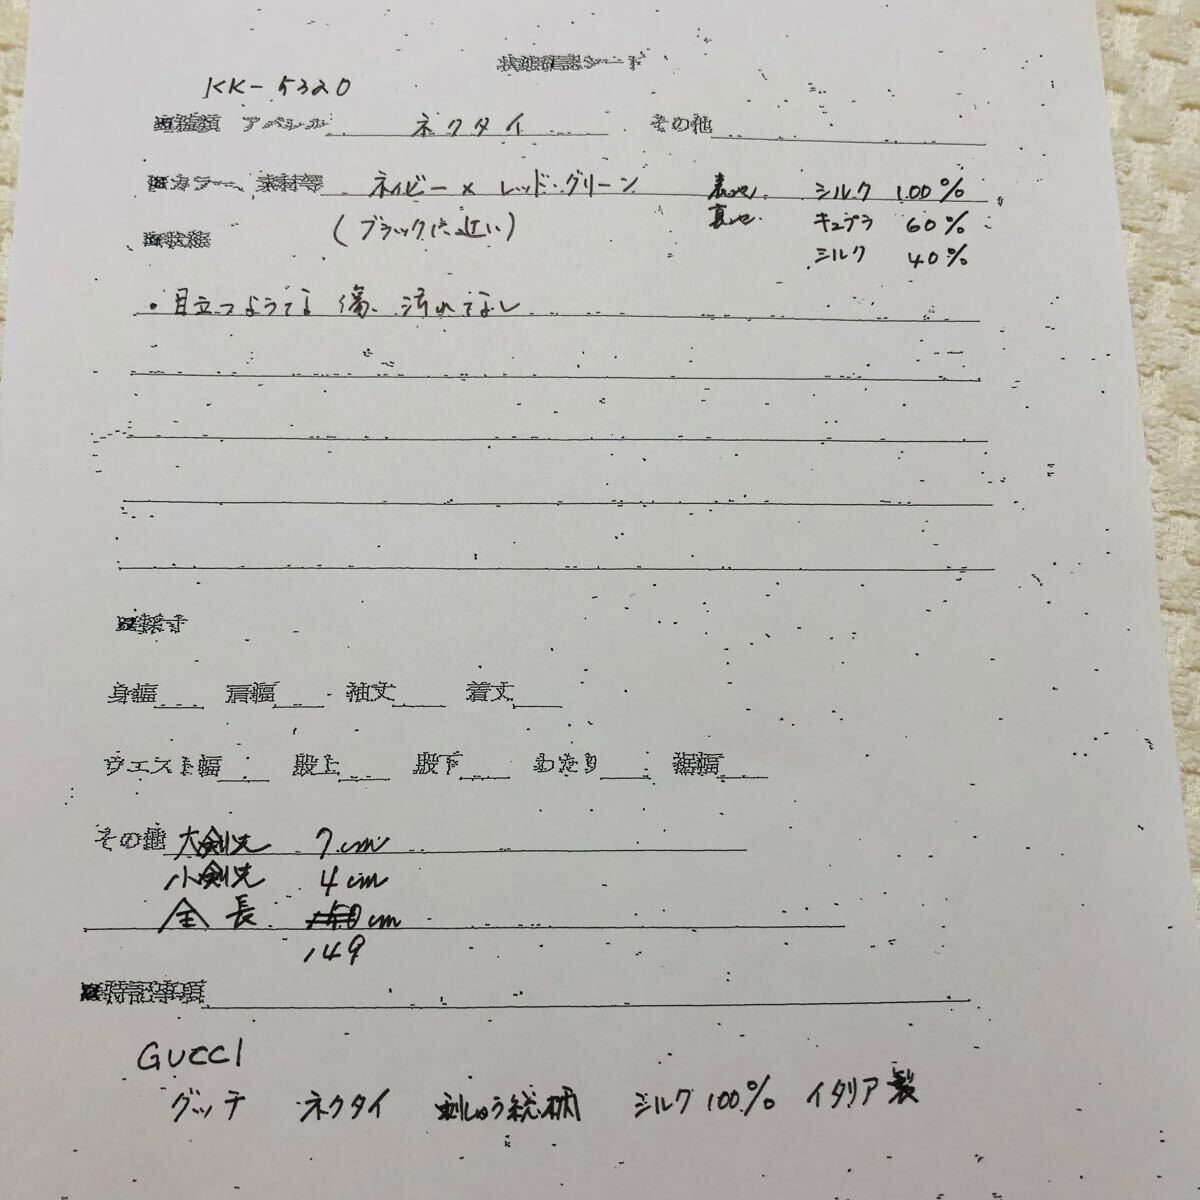 状態確認シート
KK-5320
■種類 アパレル ネクタイ その他
■カラー、素材等 ネイビー×レッド・グリーン 表地 シルク 100%
(ブラックに近い) 裏地 キュプラ 60%
■状態 シルク 40%
・目立つような傷、汚れなし
■採寸
身幅 肩幅 袖丈 着丈
ウエスト幅 股上 股下 わたり 裾幅
その他 大剣先 7cm
小剣先 4cm
全長 150cm
149
■特記事項
GUCCI
グッチ ネクタイ 刺しゅう総柄 シルク100% イタリア製